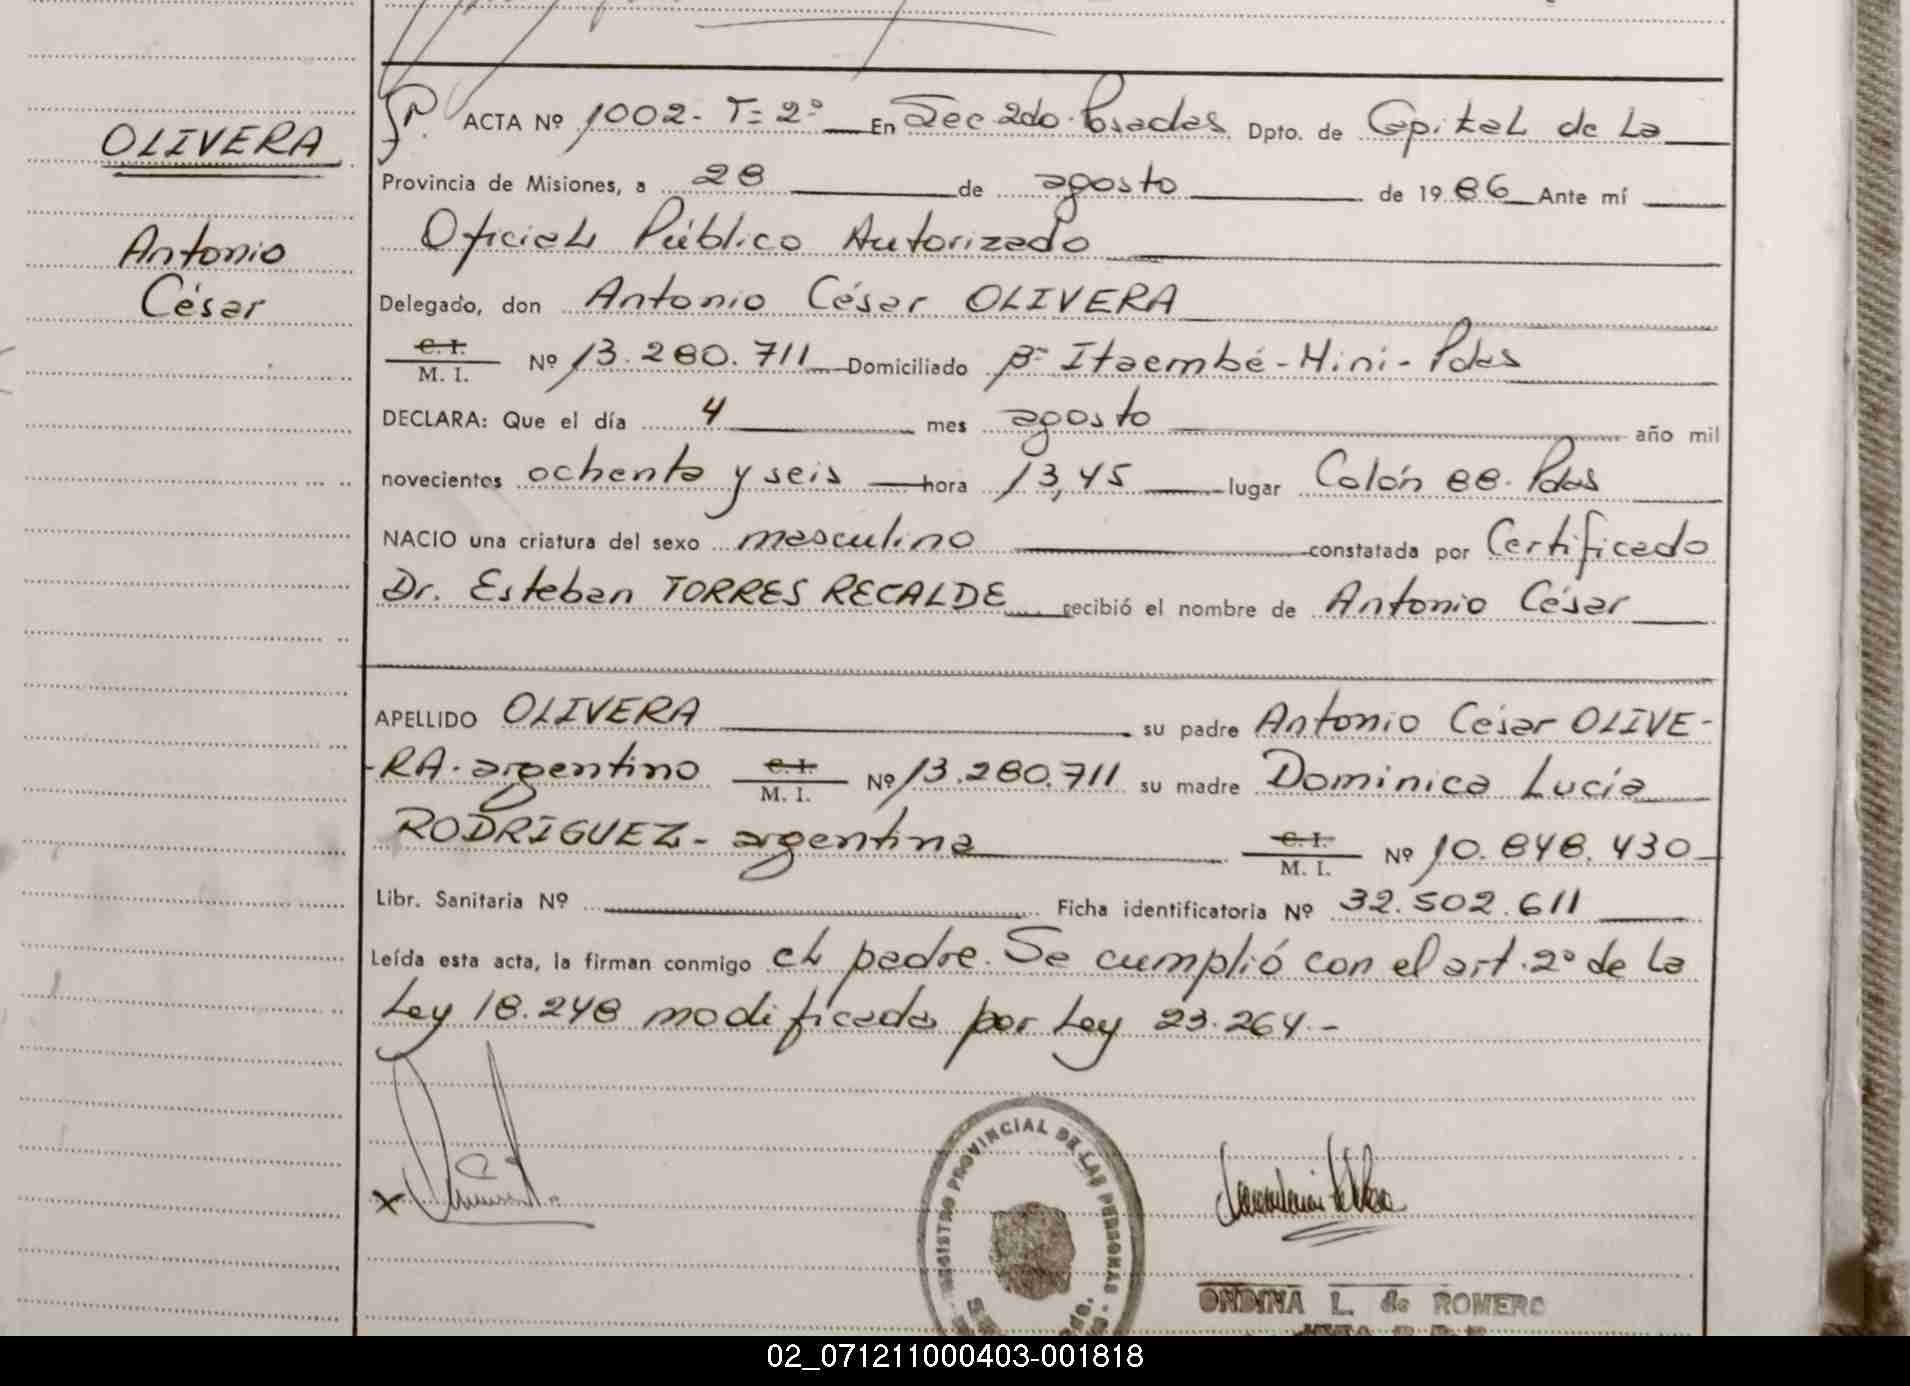 OLIVERA
Antonio
César
ACTA Nº 1002- T= 2º En Sec 2do. Posadas Dpto. de Capital de la
Provincia de Misiones, a 28 de agosto de 1986 Ante mí
Oficial Público Autorizado
Delegado, don Antonio César OLIVERA
C. I.
M. I. Nº 13.280.711 Domiciliado Bº Itaembé-Mini-Pdas
DECLARA: Que el día 4 mes agosto año mil
novecientos ochenta y seis hora 13,45 lugar Colón 88. Pdas
NACIO una criatura del sexo masculino constatada por Certificado
Dr. Esteban TORRES RECALDE recibió el nombre de Antonio César
APELLIDO OLIVERA su padre Antonio César OLIVE-
-RA. argentino C. I. M. I. Nº 13.280.711 su madre Dominica Lucía
RODRIGUEZ- argentina C. I. M. I. Nº 10.848.430
Libr. Sanitaria Nº Ficha identificatoria Nº 32.502.611
Leída esta acta, la firman conmigo el padre. Se cumplió con el art. 2º de la
Ley 18.248 modificada por Ley 23.264.-
X
REGISTRO PROVINCIAL DE LAS PERSONAS
ONDINA L. de ROMERO
02_071211000403-001818